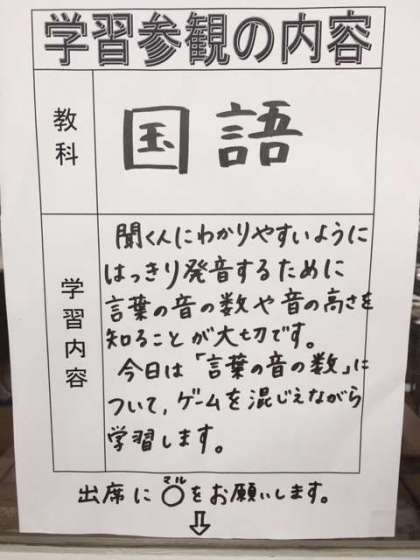 学習参観の内容
教科
国語
学習内容
聞く人にわかりやすいように
はっきり発音するために
言葉の音の数や音の高さを
知ることが大切です。
今日は「言葉の音の数」に
ついて,ゲームを混じえながら
学習します。
マル
出席に○をお願いします。
⇩